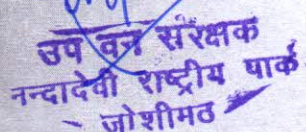 उप वन संरक्षक
नन्दादेवी राष्ट्रीय पार्क
जोशीमठ